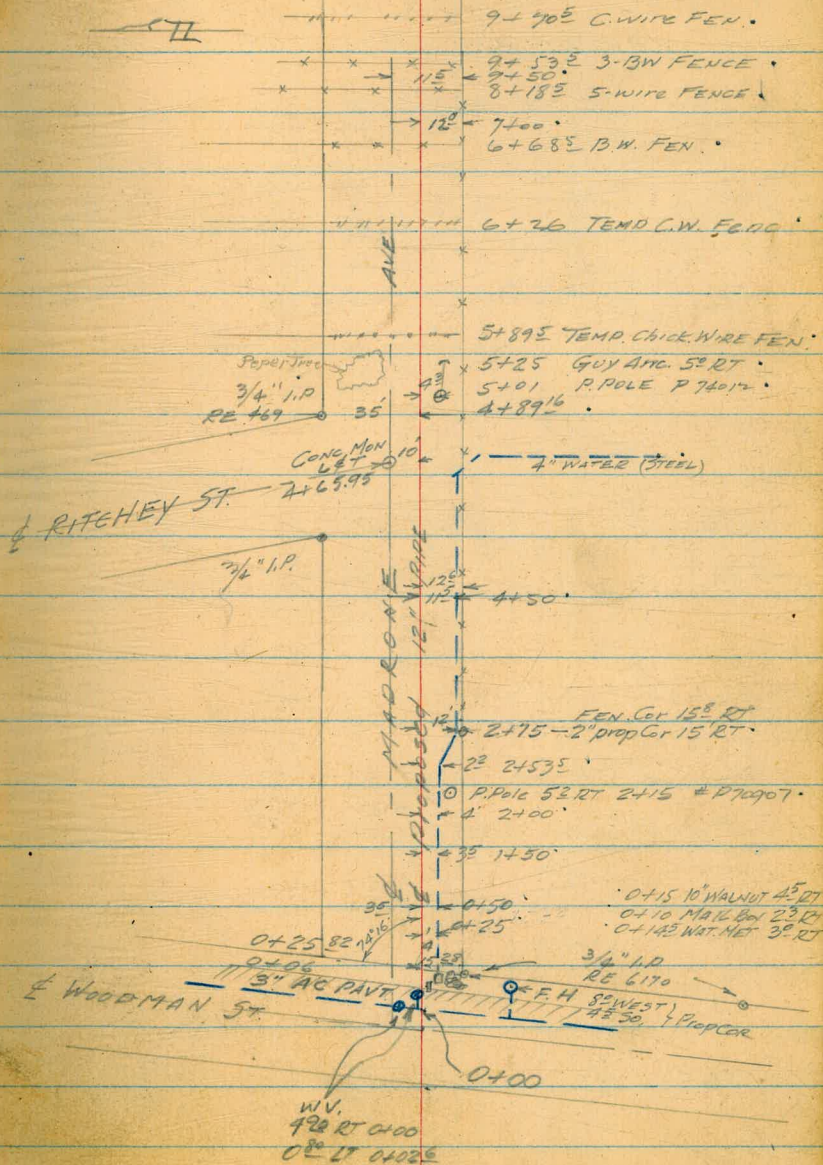 9+70⁵ C. Wire FEN.
9+53⁵ 3-BW FENCE
11⁵ 9+50
8+18⁵ 5-wire FENCE
12⁰ 7+00
6+68⁵ B.W. FEN.
6+26 TEMP C.W. Fenc
AVE
5+89⁵ TEMP. Chick. WIRE FEN.
PeperTree
5+25 Guy Anc. 5⁰ RT
4 5+01 P.POLE P 74012
3/4" I.P
RE 469 35' 4+89¹⁶
CONC. MON 10'
L&T
4+65.95
4" WATER (STEEL)
℄ RITCHEY ST.
3/4" I.P.
12⁶
11⁵ 4+50
℄ - MADRONE
℄ Proposed 12" PIPE
FEN. Cor 15⁸ RT
12' 2+75 - 2" prop Cor 15' RT
2² 2+53⁵
P.Pole 5² RT 2+15 # P70907
4' 2+00
3⁵ 1+50
0+15 10" WALNUT 4⁵ RT
35 0+50
0+10 MAIL BOX 2³ RT
1' 0+25
0+14⁵ WAT. MET 3⁰ RT
74°16'
0+25⁸²
0+06
3/4" I.P
RE 6170
3" AC PAVT.
F.H
8⁰ WEST
4⁵ SO. } PROP COR
℄ WOODMAN ST.
0+00
W.V.
4⁹⁰ RT 0+00
0⁸⁰ LT 0+02⁶